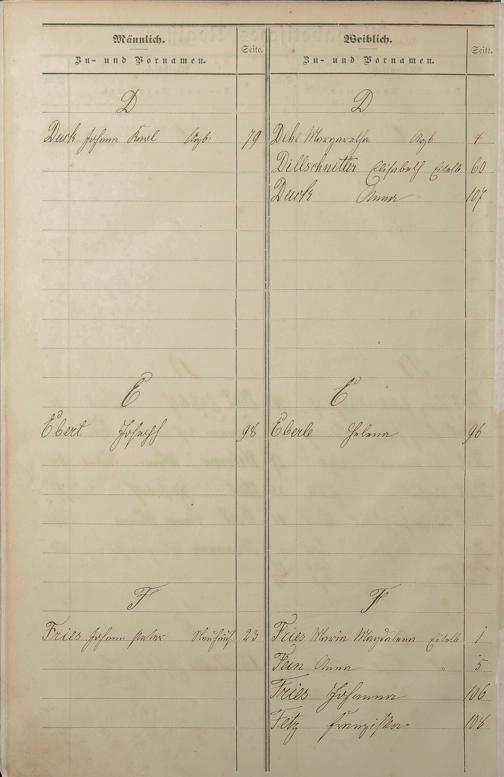 Männlich.
Zu- und Vornamen.
Seite.
D
Durk Johann Karl 79
E
Ebert Joseph 98
F
Fries Johann Peter 23
Weiblich.
Zu- und Vornamen.
Seite.
D
Dehe Margaretha 4
Dillschnitter Elisabeth 60
Durk Anna 107
E
Eberle Helena 96
F
Fries Maria Magdalena 1
Fein Anna " 5
Fries Johanna 106
Fetz Franziska 108